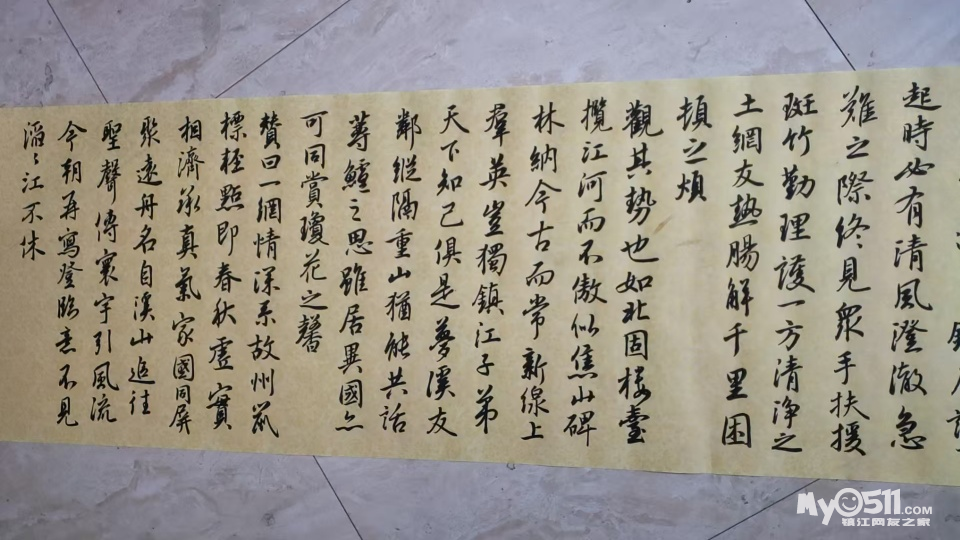 起時必有清風澄澈急
難之際終見衆手扶援
斑竹勤理護一方清净之
土網友熱腸解千里困
頓之煩
觀其勢也如北固樓臺
攬江河而不傲似焦山碑
林納今古而常新線上
羣英豈獨鎮江子弟
天下知己俱是夢溪友
鄰縱隔重山猶能共話
蓴鱸之思雖居異國亦
可同賞瓊花之馨
贊曰一網情深系故州鼠
標輕點即春秋虛實
相濟承真氣家國同屏
聚遠舟名自溪山追往
聖聲傳寰宇引風流
今朝再寫登臨意不見
滔〻江不休
My0511.com
镇江网友之家